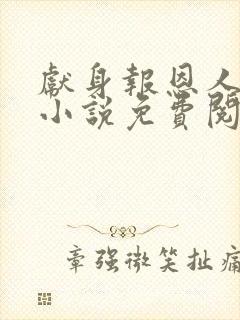 獻身報恩人
小說免費閱
章強微笑扯痛